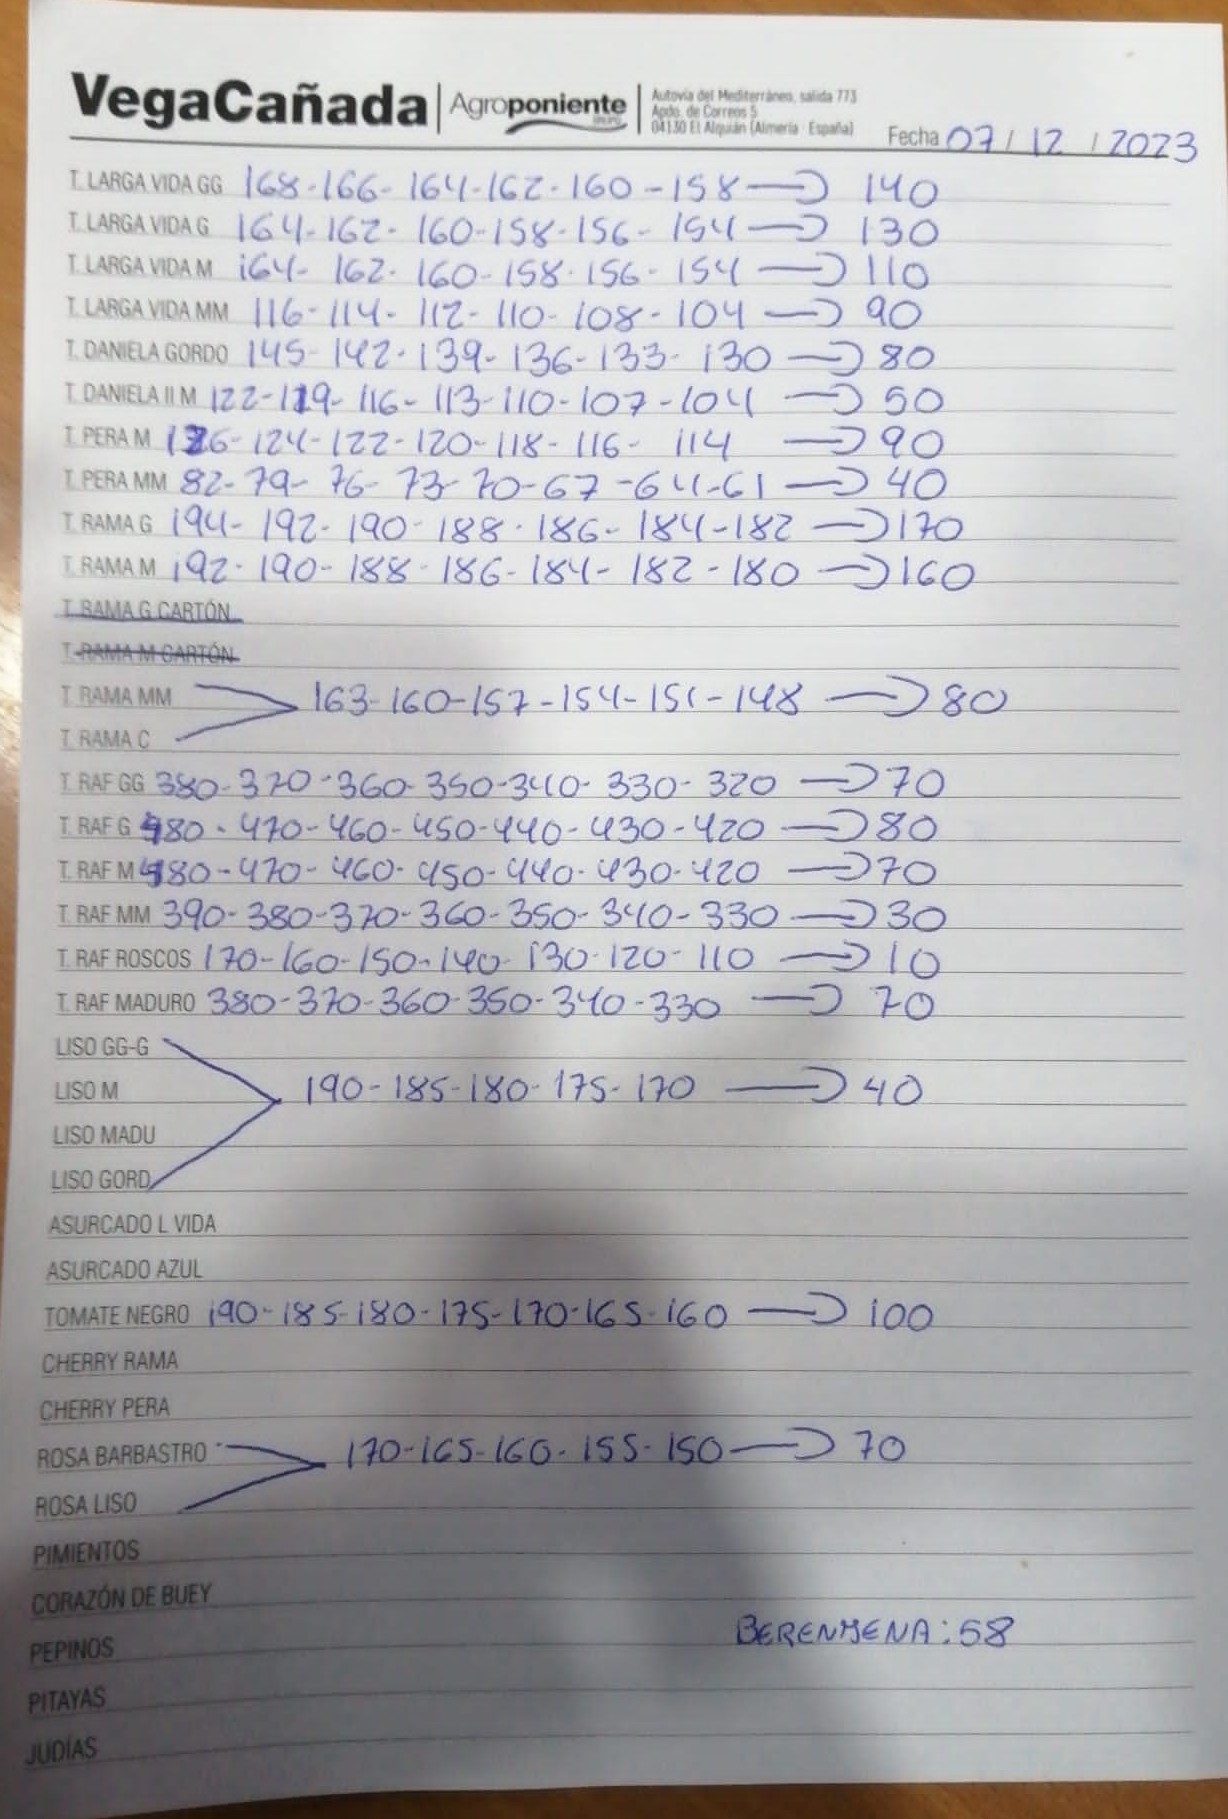 VegaCañada | Agroponiente GRUPO | Autovía del Mediterráneo, salida 773
Apdo. de Correos 5
04130 El Alquián (Almería · España)
Fecha 07 / 12 / 2023
T. LARGA VIDA GG 168-166-164-162-160-158 → 140
T. LARGA VIDA G 164-162-160-158-156-154 → 130
T. LARGA VIDA M 164-162-160-158-156-154 → 110
T. LARGA VIDA MM 116-114-112-110-108-104 → 90
T. DANIELA GORDO 145-142-139-136-133-130 → 80
T. DANIELA II M 122-119-116-113-110-107-104 → 50
T. PERA M 126-124-122-120-118-116-114 → 90
T. PERA MM 82-79-76-73-70-67-64-61 → 40
T. RAMA G 194-192-190-188-186-184-182 → 170
T. RAMA M 192-190-188-186-184-182-180 → 160
T. RAMA G CARTÓN
T. RAMA M CARTÓN
T. RAMA MM 163-160-157-154-151-148 → 80
T. RAMA C
T. RAF GG 380-370-360-350-340-330-320 → 70
T. RAF G 480-470-460-450-440-430-420 → 80
T. RAF M 480-470-460-450-440-430-420 → 70
T. RAF MM 390-380-370-360-350-340-330 → 30
T. RAF ROSCOS 170-160-150-140-130-120-110 → 10
T. RAF MADURO 380-370-360-350-340-330 → 70
LISO GG-G
LISO M 190-185-180-175-170 → 40
LISO MADU
LISO GORD
ASURCADO L VIDA
ASURCADO AZUL
TOMATE NEGRO 190-185-180-175-170-165-160 → 100
CHERRY RAMA
CHERRY PERA
ROSA BARBASTRO 170-165-160-155-150 → 70
ROSA LISO
PIMIENTOS
CORAZÓN DE BUEY
BERENJENA: 58
PEPINOS
PITAYAS
JUDÍAS